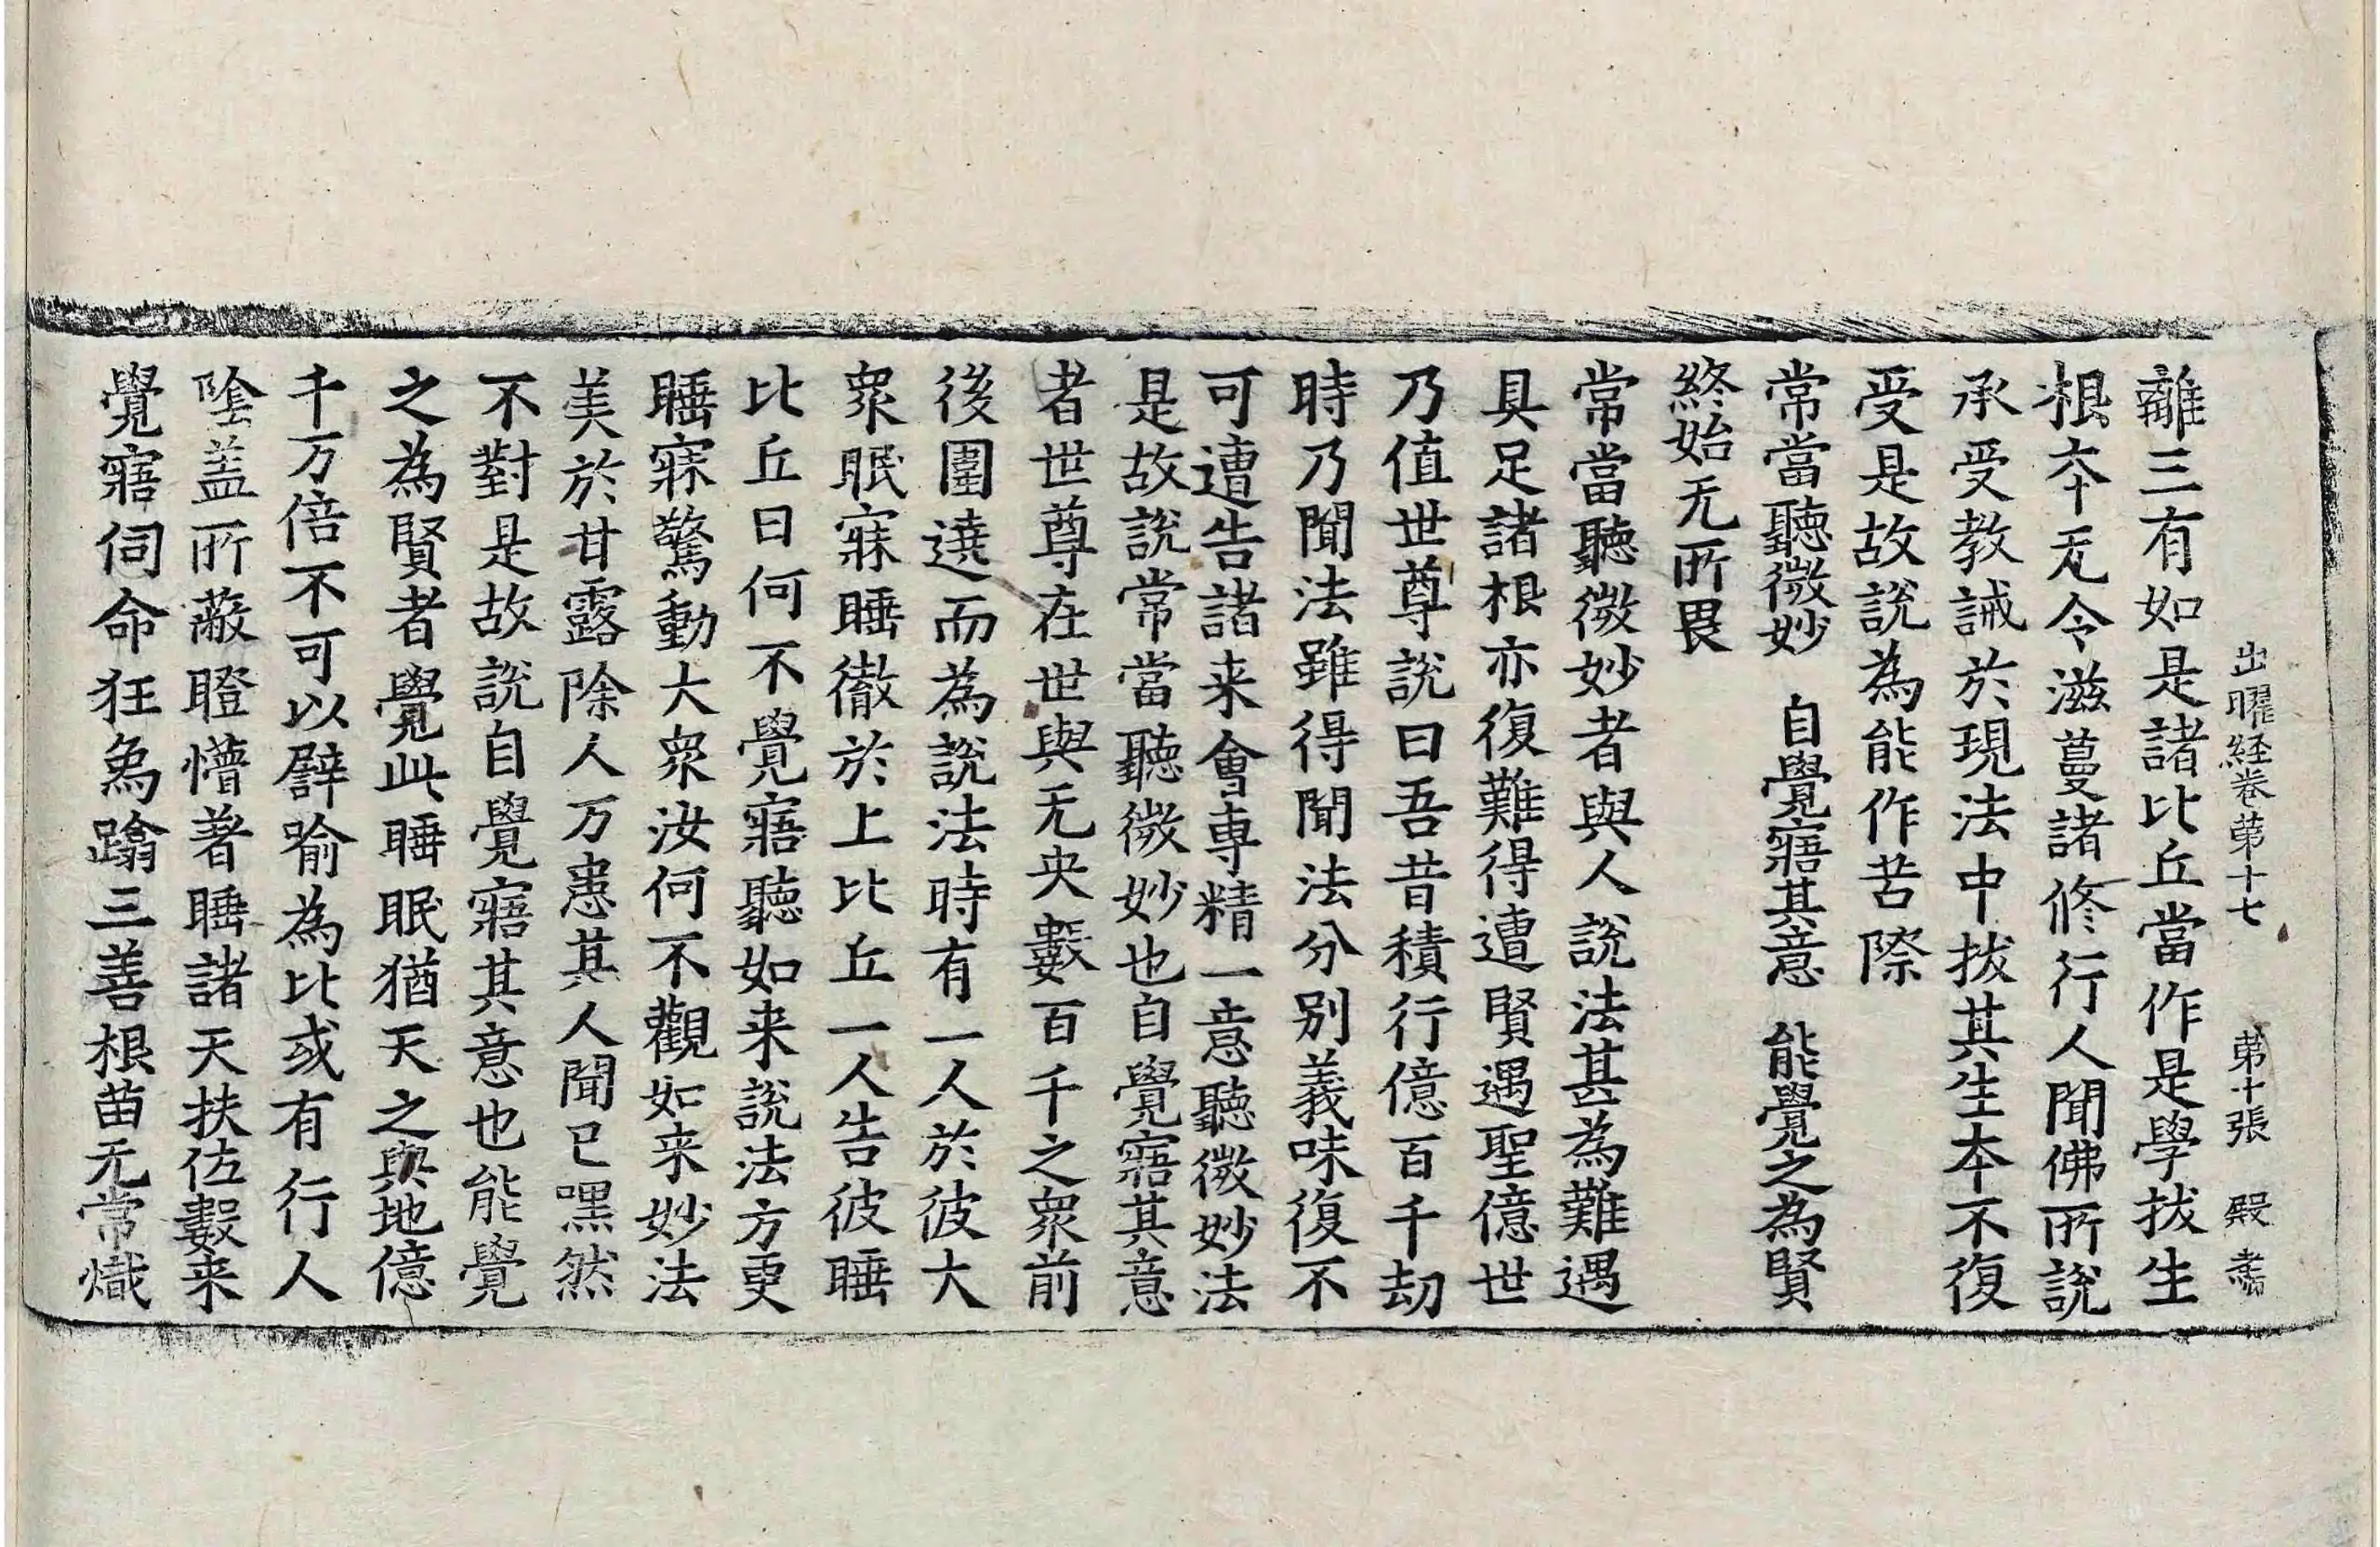 出曜経巻苐十七 苐十張 殿
離三有如是諸比丘當作是學拔生
根夲无令滋蔓諸修行人聞佛所說
承受教誡於現法中拔其生夲不復
受是故說為能作苦際
常當聽微妙 自覺寤其意 能覺之為賢
終始无所畏
常當聽微妙者與人說法甚為難遇
具足諸根亦復難得遭賢遇聖億世
乃值世尊說曰吾昔積行億百千劫
時乃聞法雖得聞法分別義味復不
可遭告諸来會專精一意聽微妙法
是故說常當聽微妙也自覺寤其意
者世尊在世與无央數百千之眾前
後圍遶而為說法時有一人於彼大
眾眠寐睡徹於上比丘一人告彼睡
比丘曰何不覺寤聽如来說法方更
睡寐驚動大眾汝何不觀如来妙法
美於甘露除人万患其人聞已嘿然
不對是故說自覺寤其意也能覺
之為賢者覺此睡眠猶天之與地億
千万倍不可以譬喻為比或有行人
陰盖所蔽瞪懵著睡諸天扶佐數来
覺寤伺命狂象蹹三善根苗无常熾